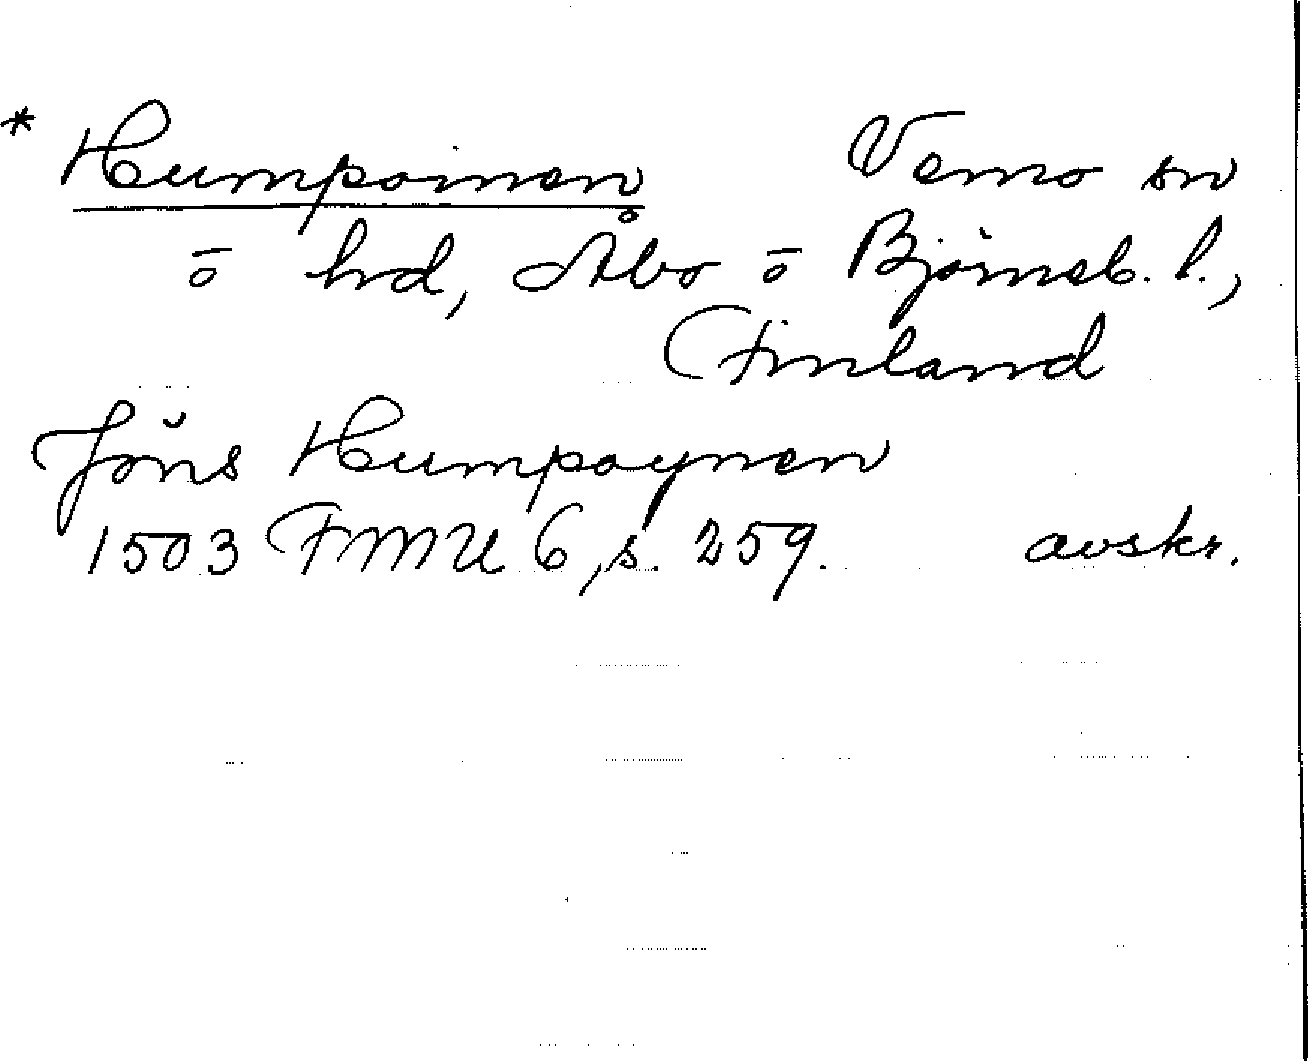 * Humpoinen Vemo sn
o hd, Åbo o Björneb. l.,
Finland
Jöns Humpoynen
1503 FMU 6, s. 259. avskr.